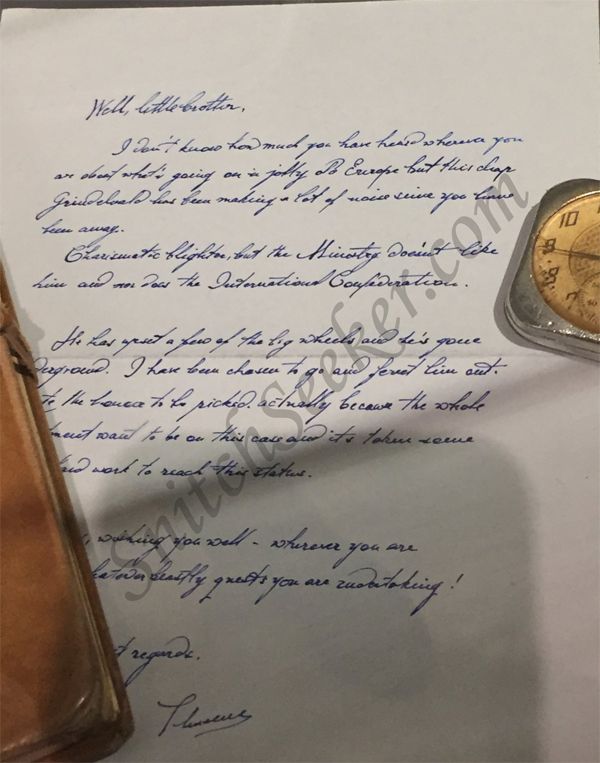 Well, little brother,
I don't know how much you have heard wherever you
are about what's going on in jolly old Europe but this chap
Grindelwald has been making a lot of noise since you have
been away.
Charismatic blighter, but the Ministry doesn't like
him and nor does the International Confederation.
He has upset a few of the big wheels and he's gone
derground. I have been chosen to go and ferret him out.
te the honour to be picked, actually because the whole
tment want to be on this case and it's taken some
hard work to reach this status.
, wishing you well - wherever you are
hatever beastly quests you are undertaking!
t regards.
Theseus
SnitchSeeker.com
10